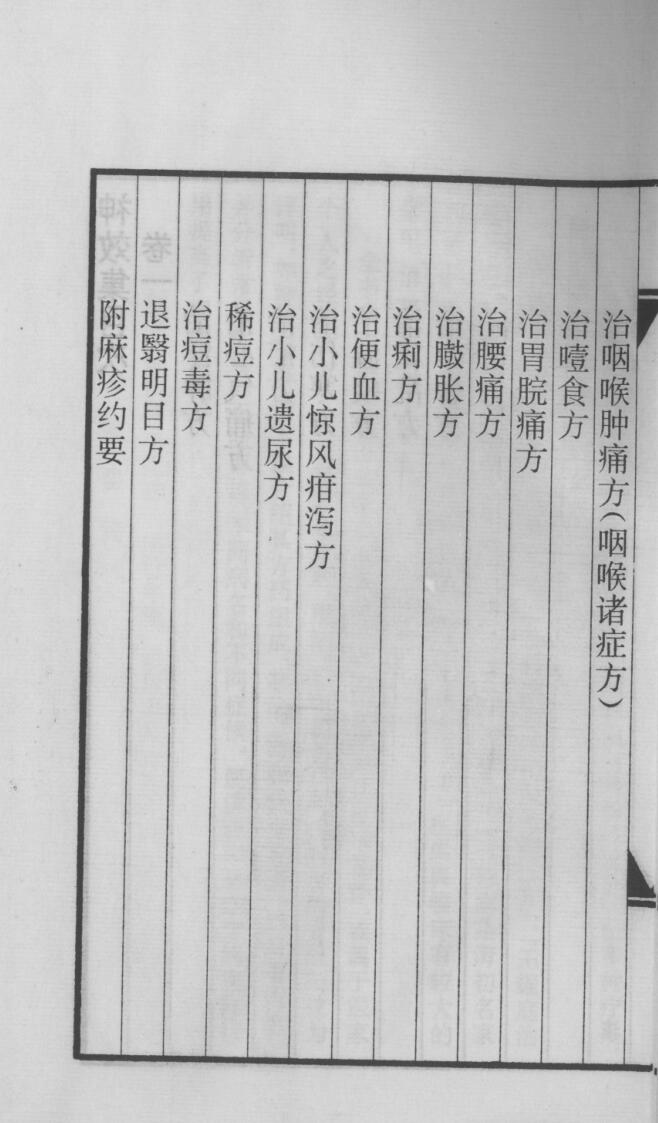 治咽喉肿痛方(咽喉诸症方)
治噎食方
治胃脘痛方
治腰痛方
治臌胀方
治痢方
治便血方
治小儿惊风疳泻方
治小儿遗尿方
稀痘方
治痘毒方
退翳明目方
附麻疹约要